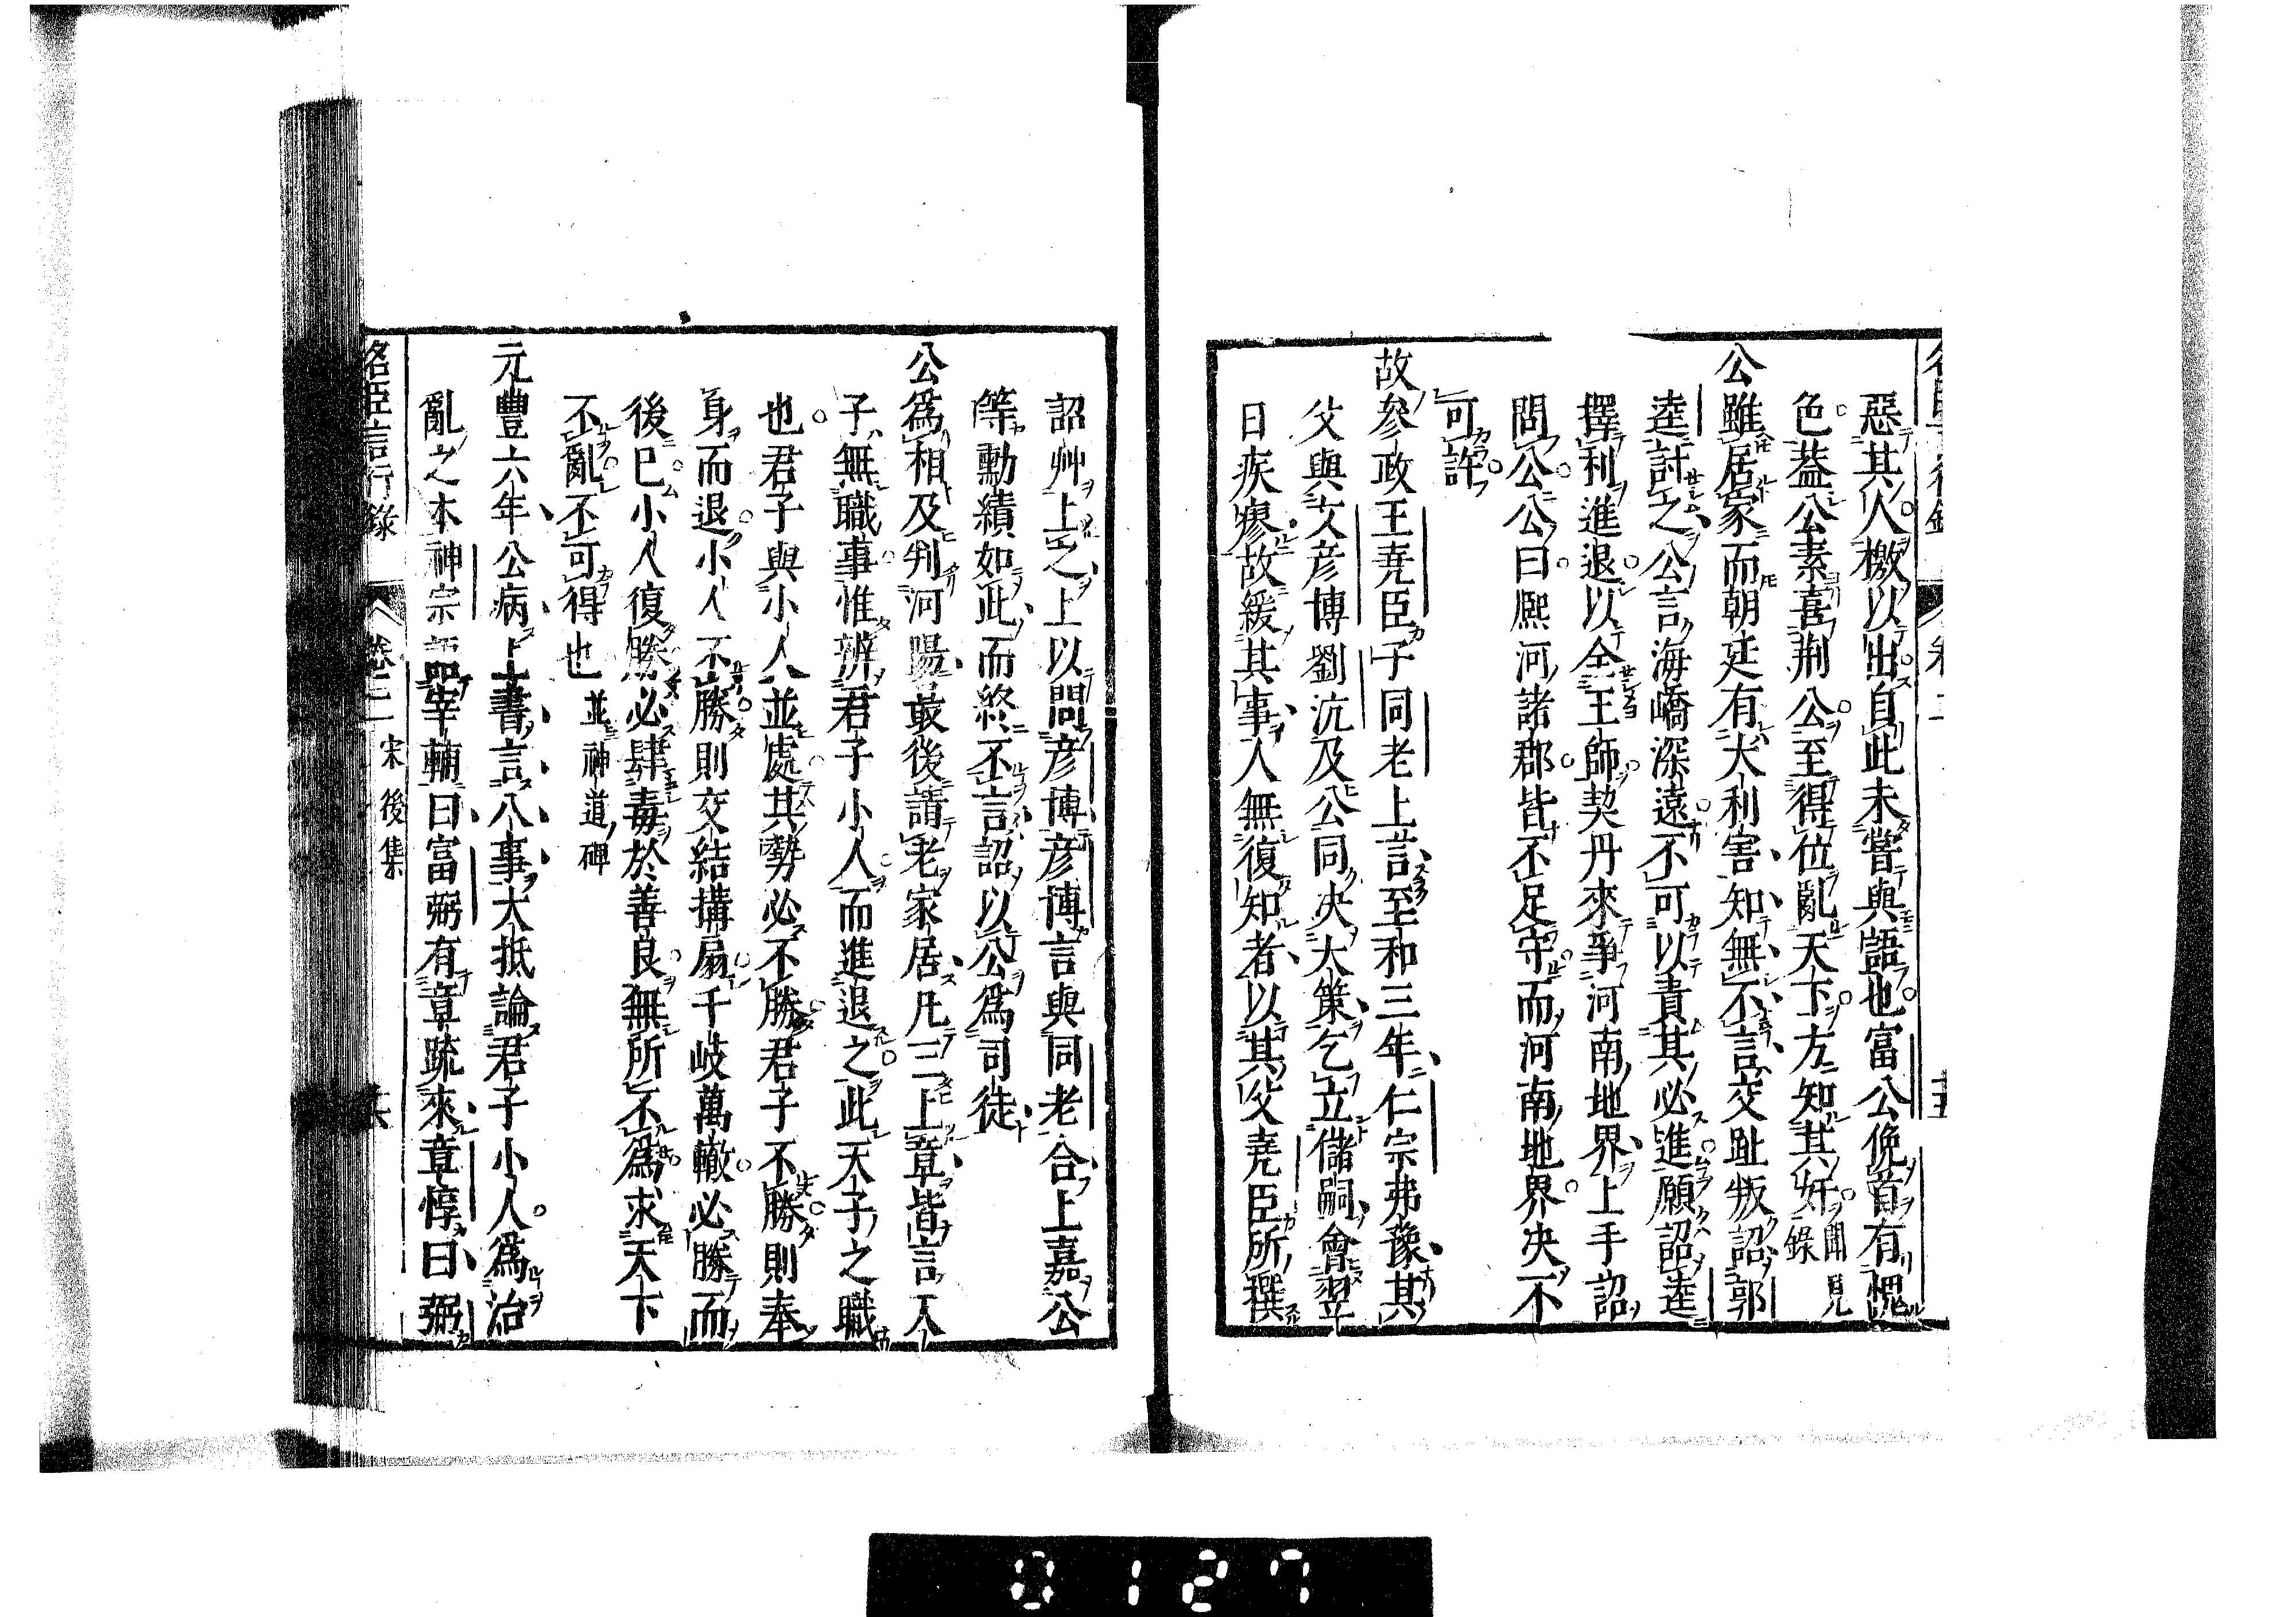 惡其人檄以出自此未嘗與語也富公俛首有愧
色蓋公素喜荆公至得位亂天下方知其奸聞見錄
公雖居家而朝廷有大利害知無不言交趾叛詔郭
逵討之公言海嶠深遠不可以責其必進願詔逵
擇利進退以全王師契丹來爭河南地界上手詔
問公公曰熈河諸郡皆不足守而河南地界决不
可許
故參政王堯臣子同老上言至和三年仁宗弗豫其
父與文彦博劉沆及公同决大策乞立儲嗣會翌
日疾瘳故緩其事人無復知者以其父堯臣所撰
詔艸上之上以問彦博彦博言與同老合上嘉公
等勳績如此而終不言詔以公爲司徒
公爲相及判河陽最後請老家居凡三上章皆言人
子無職事惟辨君子小人而進退之此天子之職
也君子與小人並處其勢必不勝君子不勝則奉
身而退小人不勝則交結搆扇千岐萬轍必勝而
後已小人復勝必肆毒於善良無所不爲求天下
不亂不可得也並神道碑
元豐六年公病上書言八事大抵論君子小人爲治
亂之本神宗語宰輔曰富弼有章疏來章惇曰弼
名臣言行錄 卷二 宋後集
0127